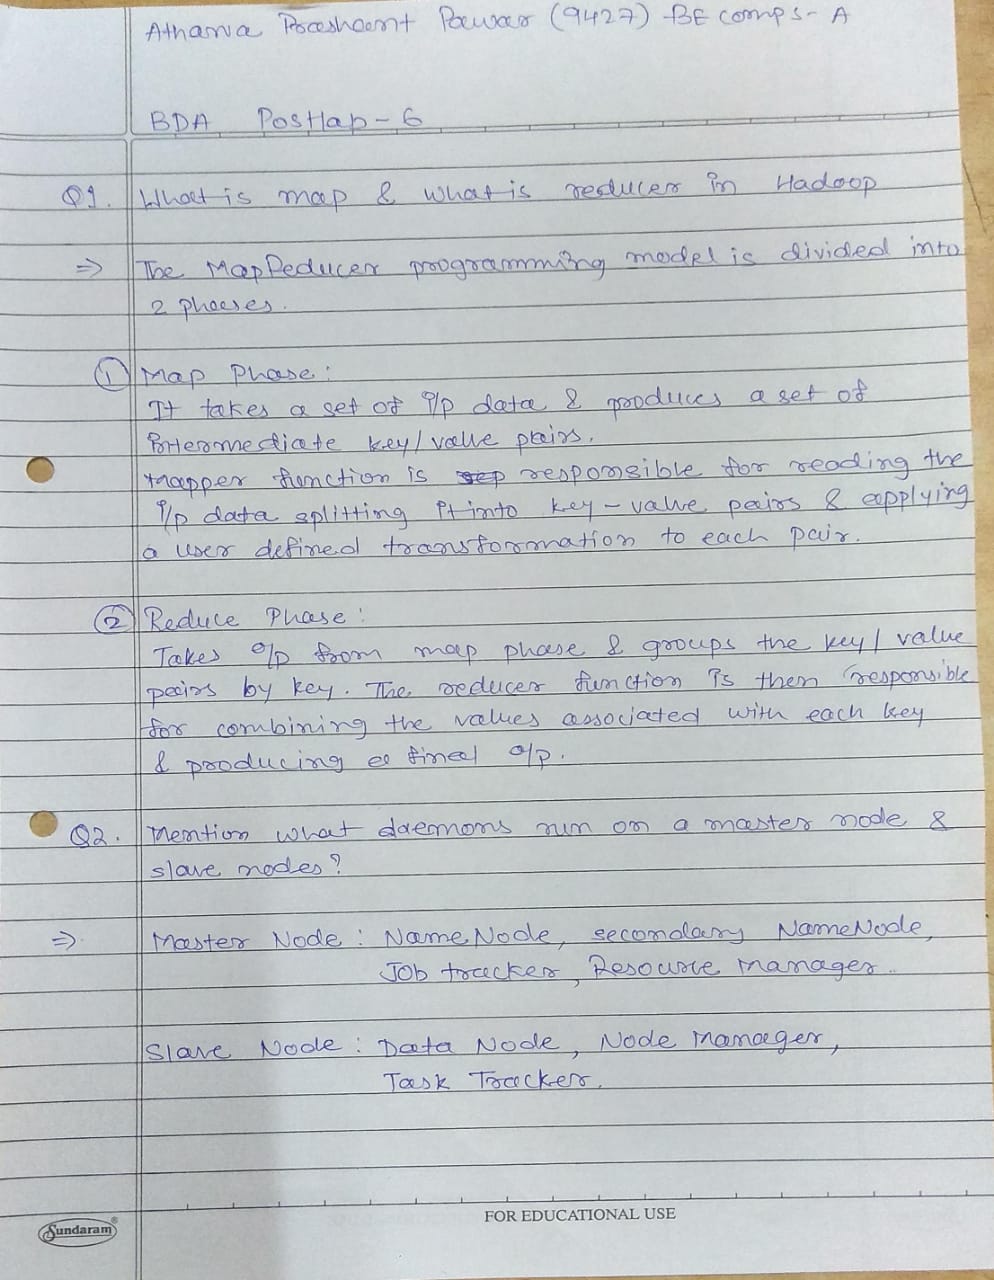 Atharva Prashant Pawar (9427) BE comps - A
BDA Postlab - 6
Q1. What is map & what is reducer in Hadoop
⇒ The MapReducer programming model is divided into
2 phases.
① Map Phase:
It takes a set of i/p data & produces a set of
intermediate key/value pairs.
mapper function is responsible for reading the
i/p data splitting it into key-value pairs & applying
a user defined transformation to each pair.
② Reduce Phase:
Takes o/p from map phase & groups the key/value
pairs by key. The reducer function is then responsible
for combining the values associated with each key
& producing a final o/p.
Q2. Mention what daemons run on a master node &
slave nodes?
⇒ Master Node: NameNode, secondary NameNode,
Job tracker, Resource manager.
Slave Node: Data Node, Node Manager,
Task Tracker.
FOR EDUCATIONAL USE
Sundaram®